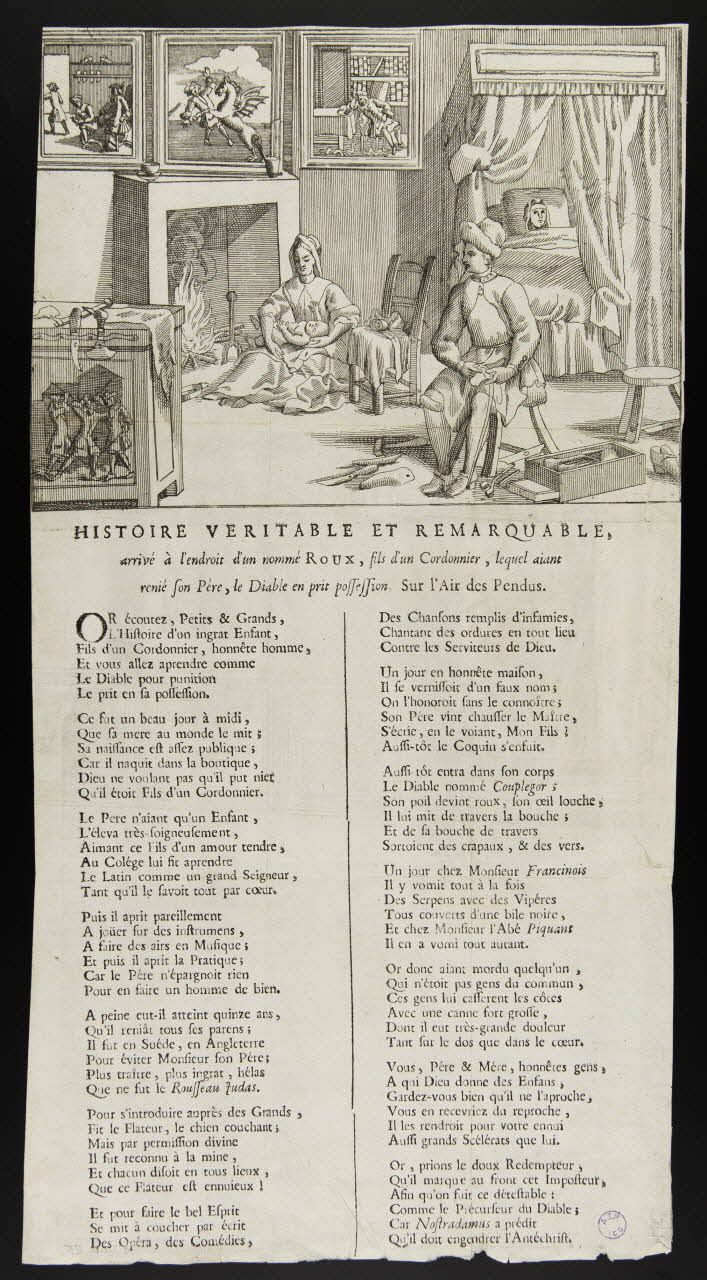 HISTOIRE VERITABLE ET REMARQUABLE,
arrivé à l'endroit d'un nommé ROUX, fils d'un Cordonnier, lequel aiant
renié ſon Pére, le Diable en prit poſſeſſion. Sur l'Air des Pendus.
OR écoutez, Petits & Grands,
L'Hiſtoire d'un ingrat Enfant,
Fils d'un Cordonnier, honnête homme,
Et vous allez aprendre comme
Le Diable pour punition
Le prit en ſa poſſeſſion.
Ce fut un beau jour à midi,
Que ſa mere au monde le mit;
Sa naiſſance eſt aſſez publique;
Car il naquit dans la boutique,
Dieu ne voulant pas qu'il put nier
Qu'il étoit Fils d'un Cordonnier.
Le Pere n'aiant qu'un Enfant,
L'éleva très-ſoigneuſement,
Aimant ce Fils d'un amour tendre,
Au Colége lui fit aprendre
Le Latin comme un grand Seigneur,
Tant qu'il le ſavoit tout par cœur.
Puis il aprit pareillement
A joüer ſur des inſtrumens,
A faire des airs en Muſique;
Et puis il aprit la Pratique;
Car le Pére n'épargnoit rien
Pour en faire un homme de bien.
A peine eut-il atteint quinze ans,
Qu'il reniât tous ſes parens;
Il fut en Suéde, en Angleterre
Pour éviter Monſieur ſon Pére;
Plus traître, plus ingrat, hélas
Que ne fut le Rouſſeau Judas.
Pour s'introduire auprès des Grands,
Fit le Flateur, le chien couchant;
Mais par permiſſion divine
Il fut reconnu à la mine,
Et chacun diſoit en tous lieux,
Que ce Flateur eſt ennuieux!
Et pour faire le bel Eſprit
Se mit à coucher par écrit
Des Opéra, des Comédies,
Des Chanſons remplis d'infamies,
Chantant des ordures en tout lieu
Contre les Serviteurs de Dieu.
Un jour en honnête maiſon,
Il ſe verniſſoit d'un faux nom;
On l'honoroit ſans le connoître;
Son Pére vint chauſſer le Maître,
S'écrie, en le voiant, Mon Fils!
Auſſi-tôt le Coquin s'enfuit.
Auſſi-tôt entra dans ſon corps
Le Diable nommé Couplegor;
Son poil devint roux, ſon œil louche,
Il lui mit de travers la bouche;
Et de ſa bouche de travers
Sortoient des crapaux, & des vers.
Un jour chez Monſieur Francinois
Il y vomit tout à la fois
Des Serpens avec des Vipéres
Tous couverts d'une bile noire,
Et chez Monſieur l'Abé Piquant
Il en a vomi tout autant.
Or donc aiant mordu quelqu'un,
Qui n'étoit pas gens du commun,
Ces gens lui caſſerent les côtes
Avec une canne fort groſſe,
Dont il eut très-grande douleur
Tant ſur le dos que dans le cœur.
Vous, Pére & Mére, honnêtes gens,
A qui Dieu donne des Enfans,
Gardez-vous bien qu'il ne l'aproche,
Vous en recevriez du reproche,
Il les rendroit pour votre ennui
Auſſi grands Scélérats que lui.
Or, prions le doux Redempteur,
Qu'il marque au front cet Impoſteur,
Afin qu'on fuit ce déteſtable:
Comme le Précurſeur du Diable;
Car Noſtradamus a prédit
Qu'il doit engendrer l'Antéchriſt.